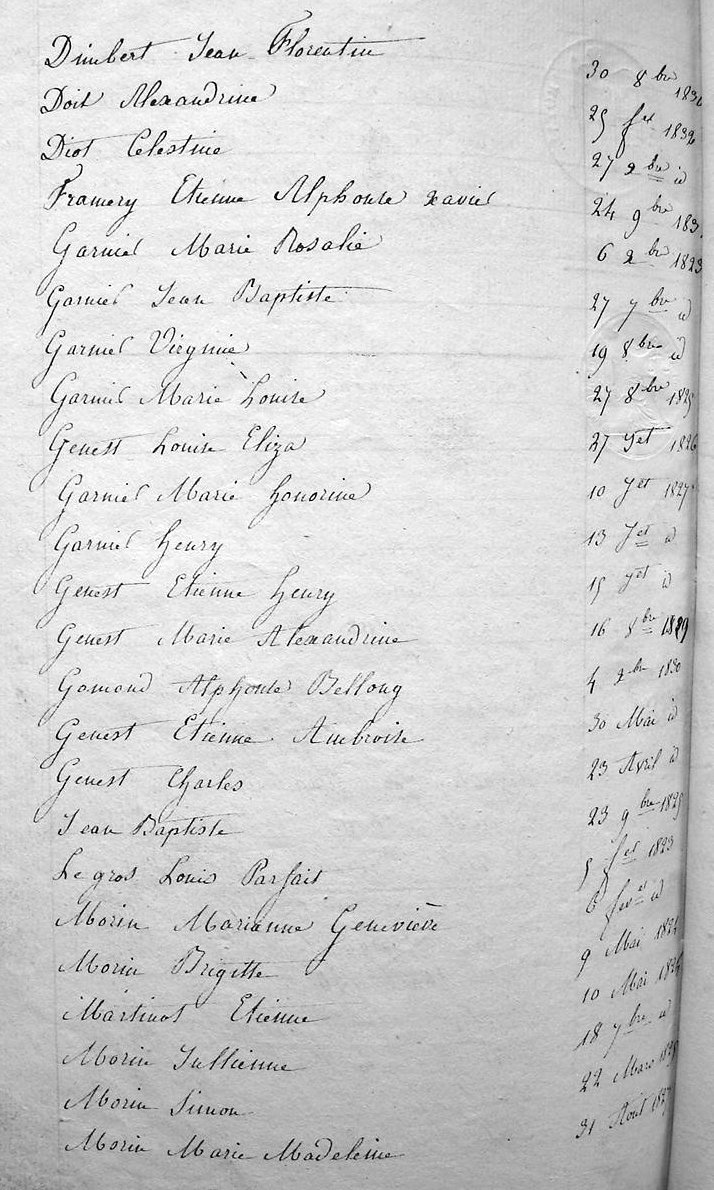 Dimbert Jean Florentin 30 8bre 1830
Doit Alexandrine 25 fer 1832
Diot Celestine 27 xbre id
Framery Etienne Alphonse xavier 24 9bre 183
Garnier Marie Rosalie 6 xbre 1823
Garnier Jean Baptiste 27 7bre id
Garnier Virginie 19 8bre id
Garnier Marie Louise 27 8bre 1825
Genest Louise Eliza 27 Jet 1826
Garnier Marie honorine 10 Jet 1827
Garnier henry 13 Jet id
Genest Etienne henry 15 Jet id
Genest Marie Alexandrine 16 8bre 1829
Gomond Alphonse Bellony 4 xbre 1830
Genest Etienne Ambroise 30 Mai id
Genest Charles 23 Avril id
Jean Baptiste 23 9bre 1825
Le gros Louis Parfait 5 1823
Morin Marianne Geneviève 6 id
Morin Brigitte 9 Mai 1824
Martinot Etienne 10 Mai
Morin Jullienne 18 7bre id
Morin Simon 22 Mars
Morin Marie Madeleine 31 Aout